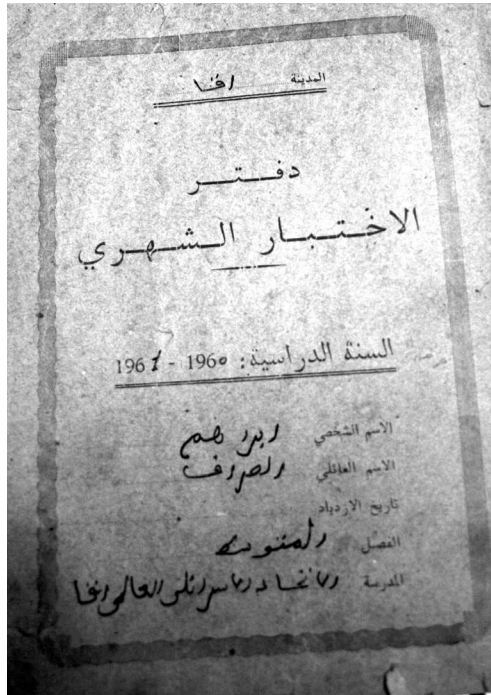 المدينة اقا
دفـتـر
الاختـبـار الـشـهـري
السنة الدراسية: 1960 - 1961
الاسم الشخصي ابراهيم
الاسم العائلي الصراف
تاريخ الازدياد
الفصل المتوسط
المدرسة الاتحاد الاسرائلي العالمي اقا